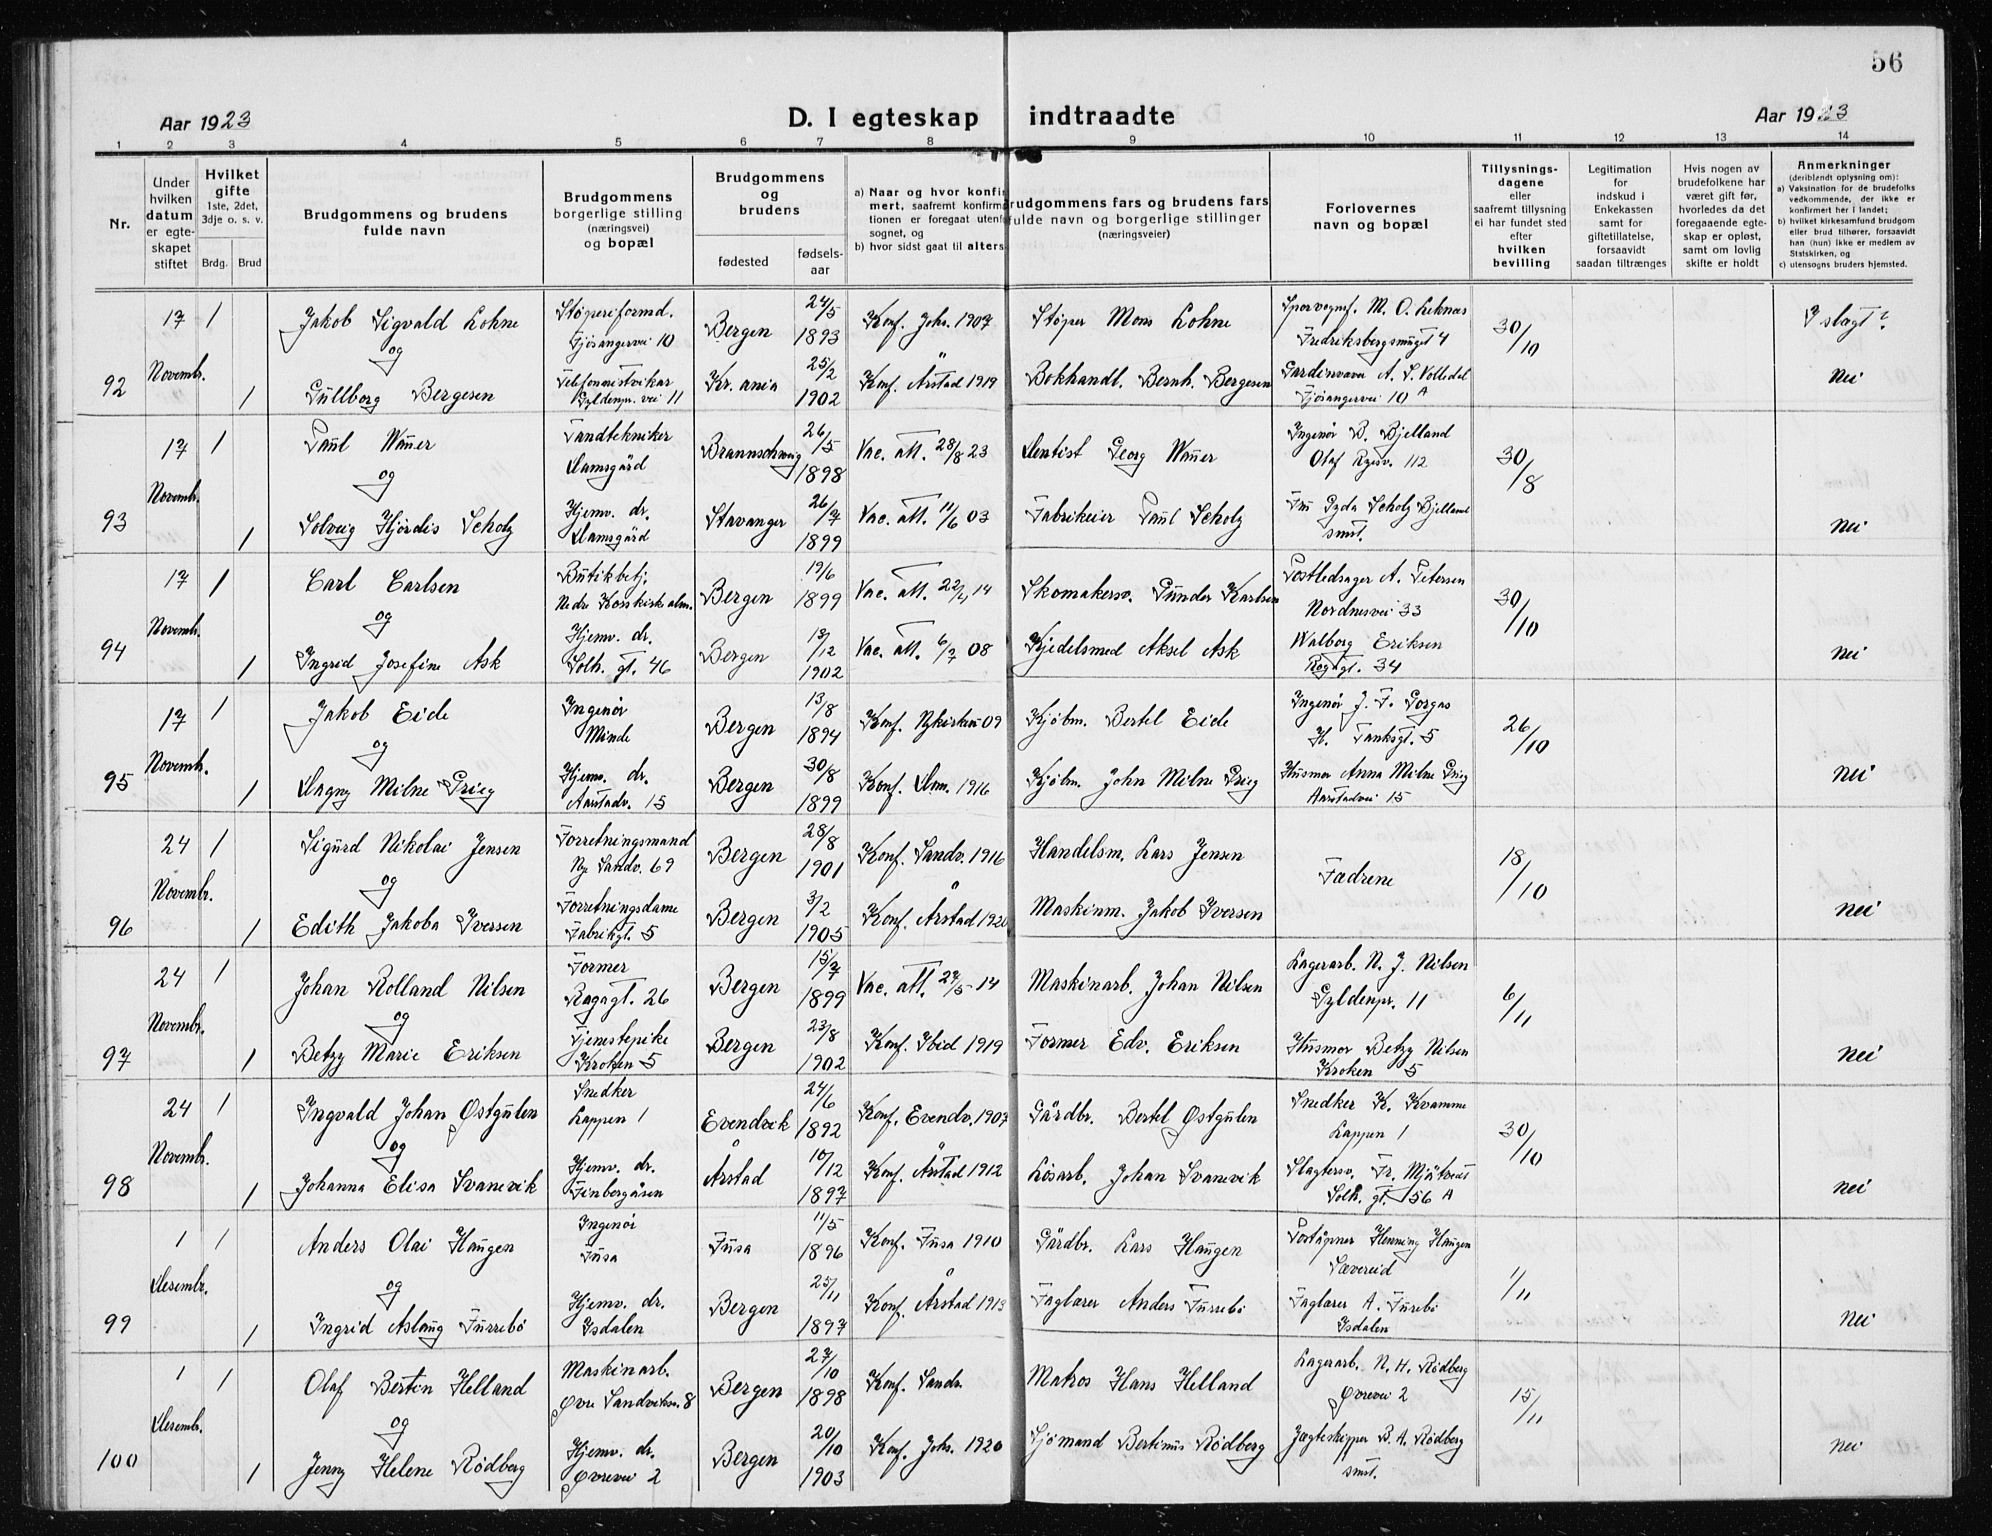 56
Aar 1923
D. I egteskap indtraadte
Aar 1923
1 2 3 4 5 6 7 8 9 10 11 12 13 14
Nr.
Under hvilken datum er egteskapet stiftet
Hvilket gifte 1ste, 2det, 3dje o. s. v.
Brdg. Brud
Brudgommens og brudens fulde navn
Brudgommens borgerlige stilling (næringsvei) og bopæl
Brudgommens og brudens
fødested
fødselsaar
a) Naar og hvor konfir
mert, saafremt konfirma
tionen er foregaat utenfo
sognet, og
b) hvor sidst gaat til alters
rudgommens fars og brudens fars
fulde navn og borgerlige stillinger
(næringsveier)
Forlovernes navn og bopæl
Tillysningsdagene eller saafremt tillysning ei har fundet sted efter hvilken bevilling
Legitimation for indskud i Enkekassen samt for giftetillatelse, forsaavidt saadan tiltrænges
Hvis nogen av brudefolkene har været gift før, hvorledes da det foregaaende egteskap er opløst, samt om lovlig skifte er holdt
Anmerkninger
(deriblendt oplysning om):
a) Vaksination for de brudefolks vedkommende, der ikke er konfirmert her i landet;
b) hvilket kirkesamfund brudgom eller brud tilhører, forsaavidt han (hun) ikke er medlem av Statskirken, og
c) utensogns bruders hjemsted.
92
17 Novembr.
1 Jakob Sigvald Lohne
Støperiformd. Fjøsangervei 10
Bergen 24/5 1893
Konf. Johs. 1907
Støper Mons Lohne
Sporvognsf. M. O. Leknæs Fredriksbergsmugt 4
30/10
I slagt?
og
1 Gullborg Bergesen
Telefonnistvikar Gyldenpr. vei 11
Kr.ania 25/2 1902
Konf. Årstad 1919
Bokhandl. Bernh. Bergesen
Fjøsangervei 10 A
Nei
93
17 Novembr.
1 Paul Wauer
Tandtekniker Damsgård
Braunschweig 26/5 1898
Vac. att. 28/8 23
Dentist Georg Wauer
Ingenør B. Bjelland Olaf Ryesv. 112
30/8
og
1 Solveig Hjørdis Scholz
Hjemv. dr. Damsgård
Stavanger 26/7 1899
Vac. att. 11/6 03
Fabrikeier Paul Scholz
Fru Gyda Scholz Bjelland smst.
Nei
94
17 Novembr.
1 Carl Carlsen
Butikbetj. Nedre Korskirkealm.
Bergen 19/6 1899
Vac. att. 22/4 14
Skomakersv. Gunder Karlsen
Postledsager A. Petersen Nordnesvei 33
30/10
og
1 Ingrid Josefine Ask
Hjemv. dr. Solh. gt. 46
Bergen 13/12 1902
Vac. att. 6/7 08
Kjedelsmed Aksel Ask
Walborg Eriksen Ragagt. 34
Nei
95
17 Novemb.
1 Jakob Eide
Ingenør Minde
Bergen 13/8 1894
Konf. Nykirken 09
Kjøbm. Bertel Eide
Ingenør J. F. Gorgas H. Tanksgt. 5
26/10
og
1 Dagny Milne Grieg
Hjemv. dr. Aarstadv. 15
Bergen 30/8 1899
Konf. Dom. 1916
Kjøbm. John Milne Grieg
Husmor Anna Milne Grieg Aarstadvei 15
Nei
96
24 Novembr.
1 Sigurd Nikolai Jensen
Forretningsmand Nye Sandv. 69
Bergen 28/8 1901
Konf. Sandv. 1916
Handelsm. Lars Jensen
Fædrene
18/10
og
1 Edith Jakoba Iversen
Forretningsdame Fabrikgt. 5
Bergen 3/2 1905
Konf. Årstad 1920
Maskinm. Jakob Iversen
Nei
97
24 Novembr.
1 Johan Rolland Nilsen
Former Ragagt. 26
Bergen 15/7 1899
Vac. att. 27/5 14
Maskinarb. Johan Nilsen
Lagerarb. N. J. Nilsen Gyldenpr. 11
6/11
og
1 Betzy Marie Eriksen
Tjenestepike Kroken 5
Bergen 23/8 1902
Konf. Ibid 1919
Former Edv. Eriksen
Husmor Betzy Nilsen Kroken 5
Nei
98
24 Novembr.
1 Ingvald Johan Østgulen
Snedker Lappen 1
Evendvik 24/6 1892
Konf. Evendv. 1907
Gårdbr. Bertel Østgulen
Snedker K. Kvamme Lappen 1
30/10
og
1 Johanna Elisa Svanevik
Hjemv. dr. Finbergåsen
Årstad 10/12 1897
Konf. Årstad 1912
Løsarb. Johan Svanevik
Slagtersv. Fr. Mjåtveit Solh. gt. 56 A
Nei
99
1 Desembr.
1 Anders Olai Haugen
Ingenør Fusa
Fusa 11/5 1896
Konf. Fusa 1910
Gårdbr. Lars Haugen
Poståpner Henning Haugen Sævereid
1/11
og
1 Ingrid Aslaug Furrebø
Hjemv. dr. Isdalen
Bergen 25/11 1897
Konf. Årstad 1913
Faglærer Anders Furrebø
Faglærer A. Furebø Isdalen
Nei
100
1 Desembr.
1 Olaf Bertin Helland
Maskinarb. Øvre Sandviksv. 8
Bergen 27/10 1898
Konf. Sandv.
Matros Hans Helland
Lagerarb. N. H. Rødberg Øvrevei 2
15/11
og
1 Jenny Helene Rødberg
Hjemv. dr. Øvrevei 2
Bergen 20/10 1903
Konf. Johs. 1920
Sjømand Bertinus Rødberg
Jægteskipper B. A. Rødberg smst.
Nei